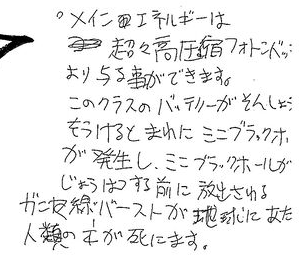 。メインエネルギーは
超々高圧縮フォトンバッ
より与る事ができます。
このクラスのバッテリーがそんしょう
をうけるとまれに ミニブラックホ
が発生し、ミニブラックホールが
じょうはつする前に放出される
ガンマ線バーストが地球にあた
人類の が死にます。